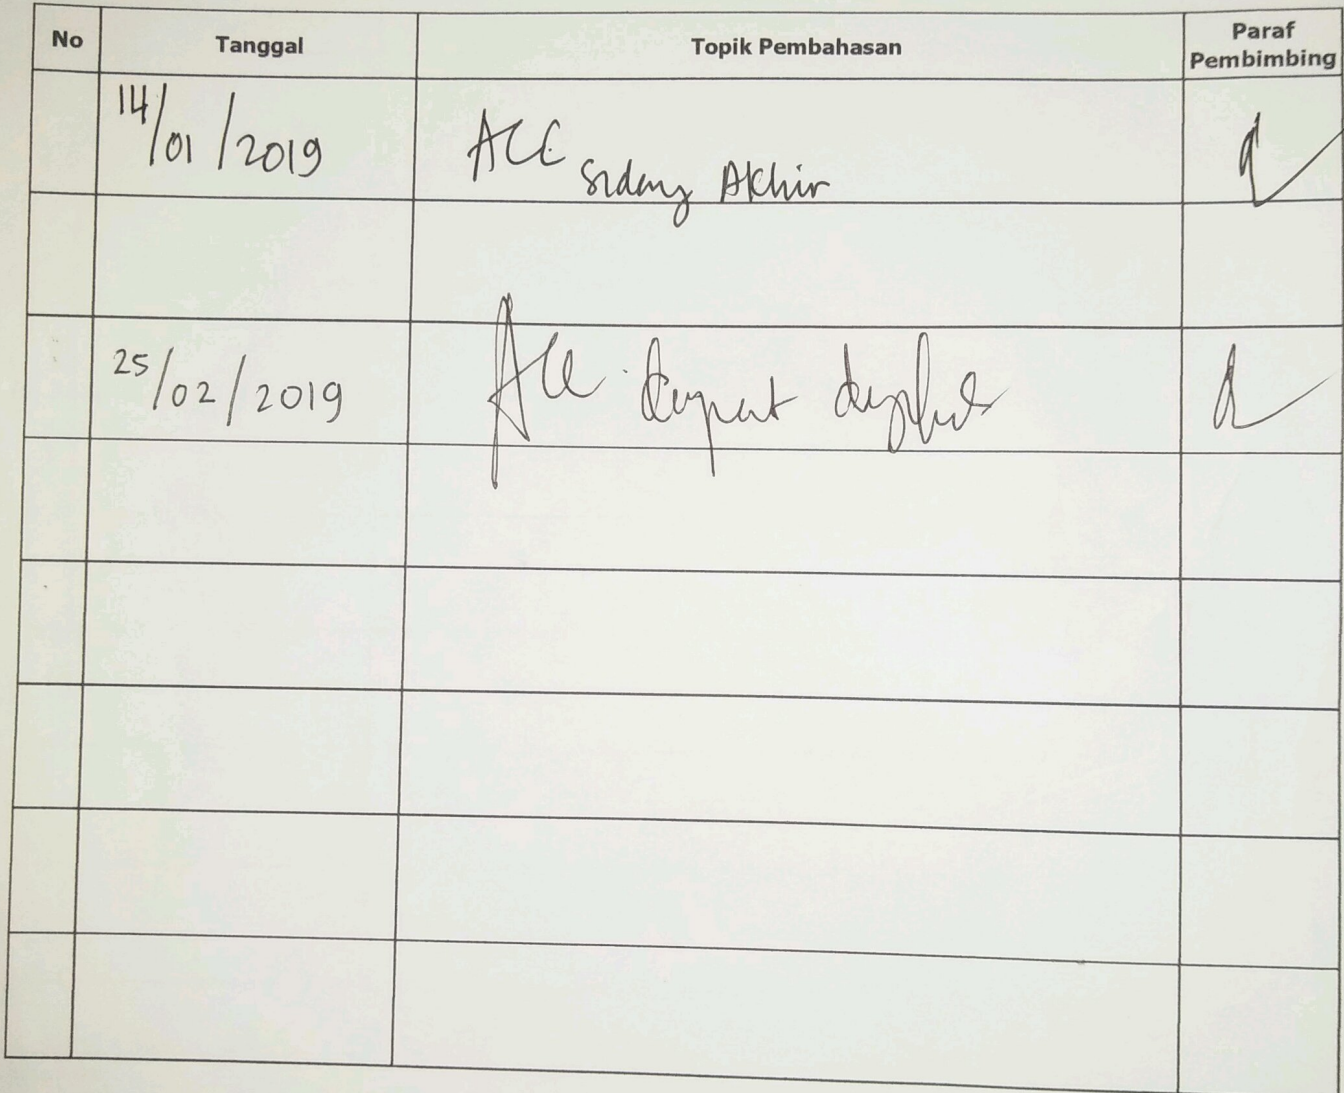 No Tanggal Topik Pembahasan Paraf Pembimbing
14/01/2019 ACC Sidang Akhir
25/02/2019 Acc dapat